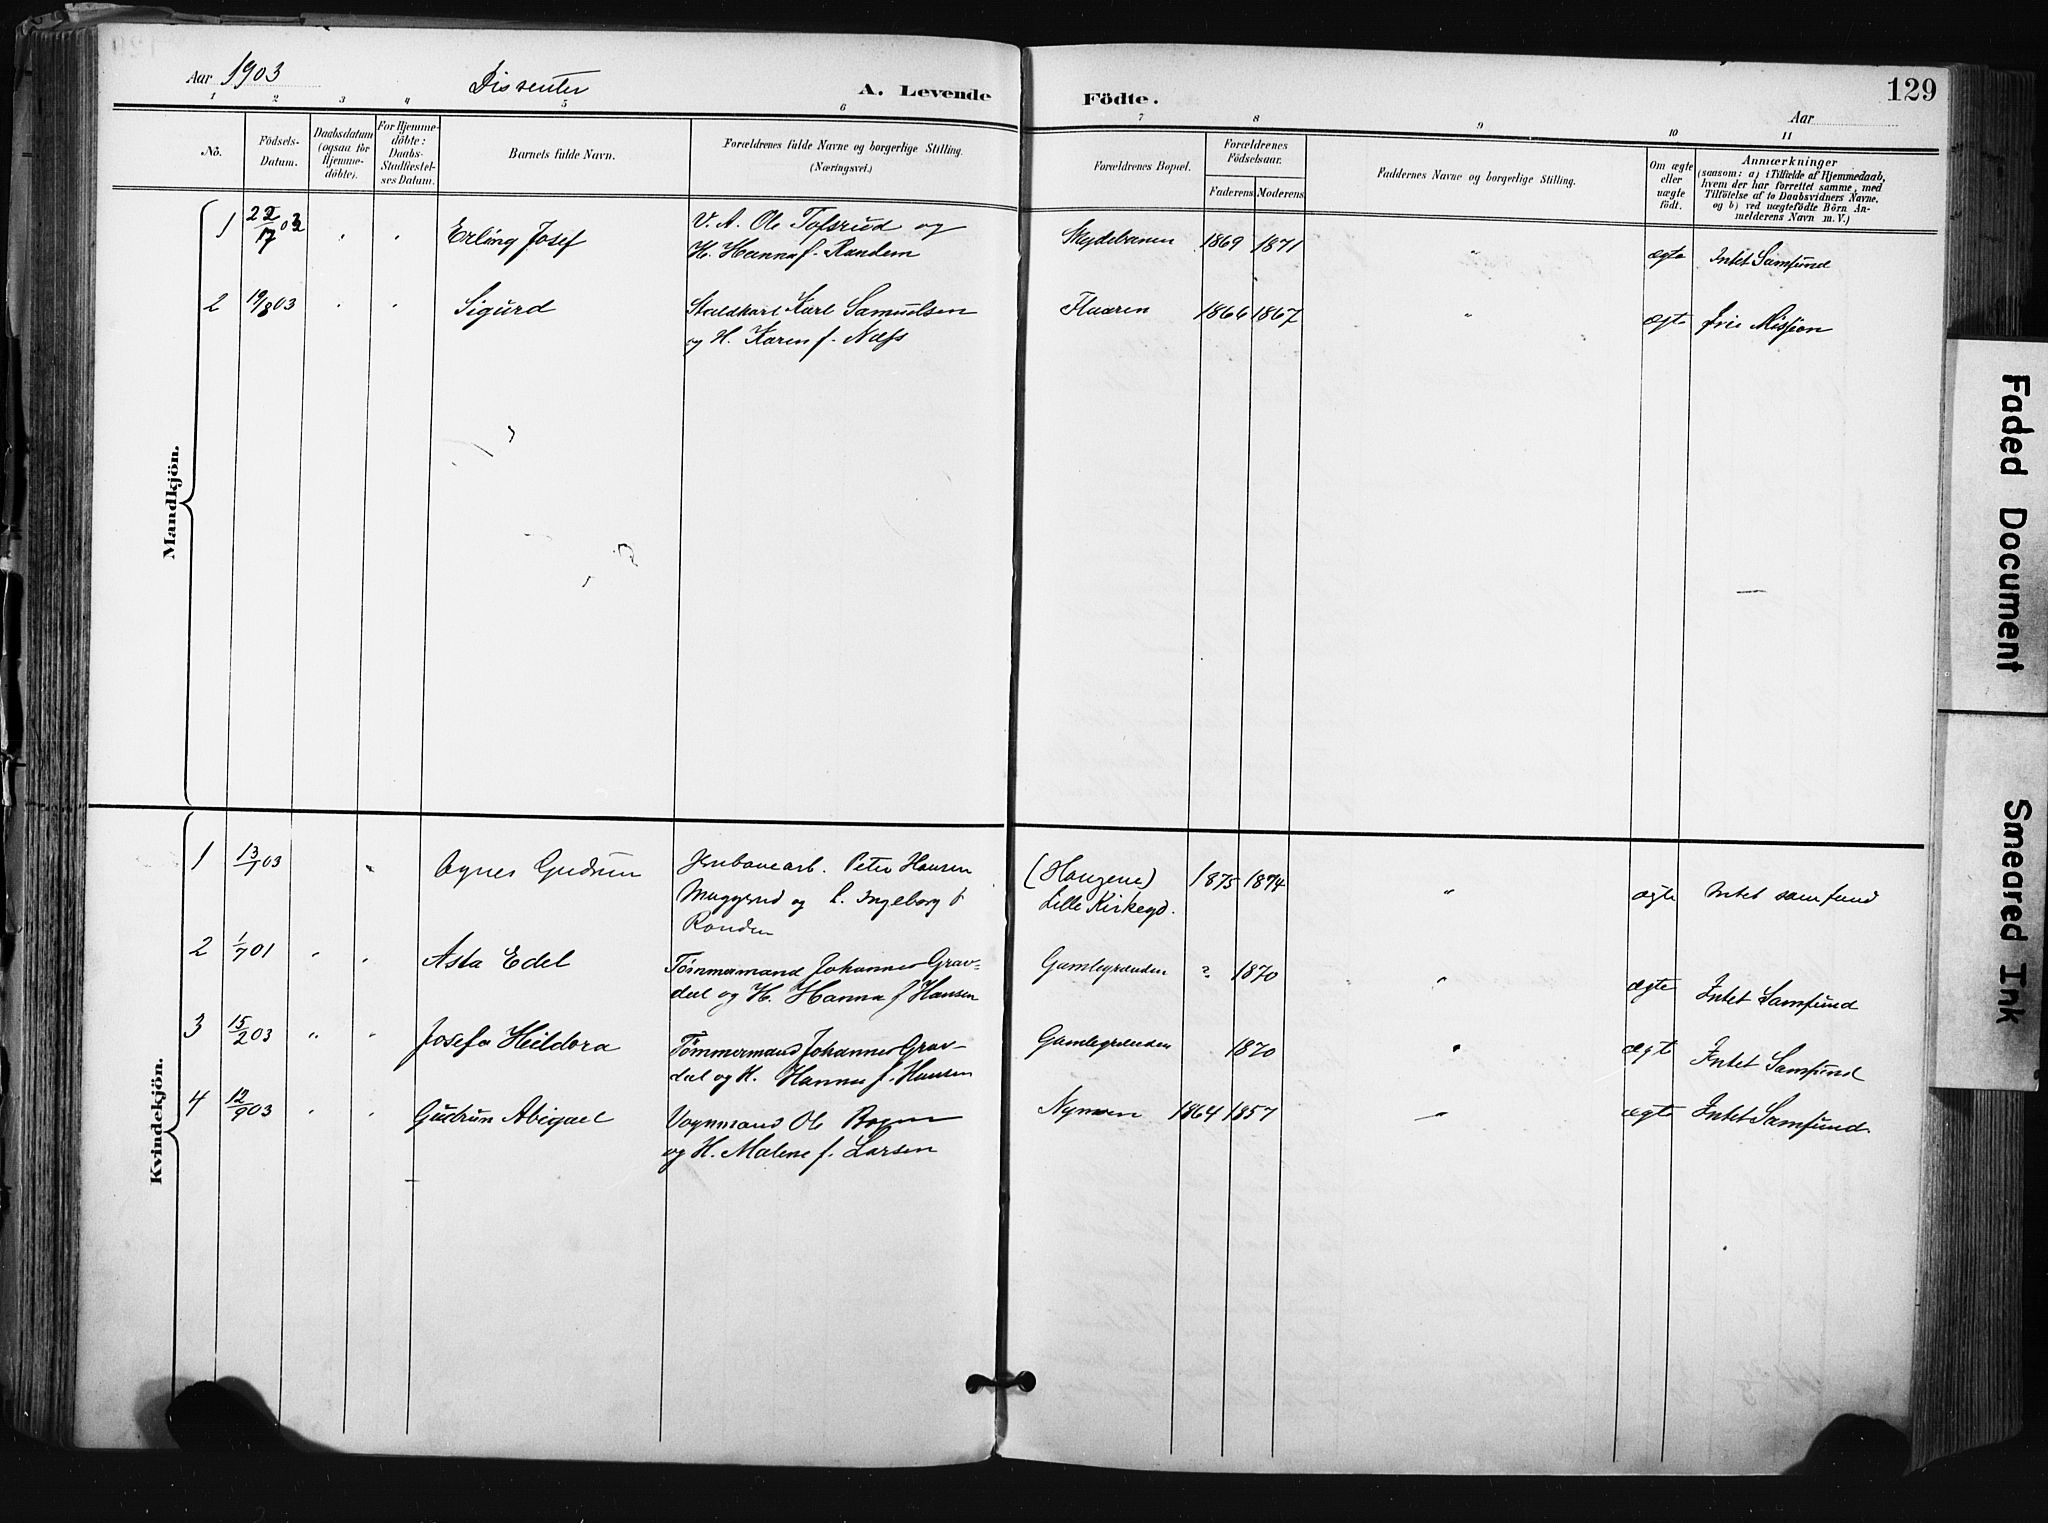 Aar 1903 Dissenter A. Levende Födte. Aar 129
1 2 3 4 5 6 7 8 9 10 11
No. Födsels-Datum. Daabsdatum (ogsaa for Hjemmedöbte). For Hjemmedöbte: Daabs-Stadfæstelses Datum. Barnets fulde Navn. Forældrenes fulde Navne og borgerlige Stilling. (Næringsvei.) Forældrenes Bopæl. Forældrenes Födselsaar. Faderens Moderens Faddernes Navne og borgerlige Stilling. Om ægte eller uægte födt. Anmærkninger (saasom: a) i Tilfælde af Hjemmedaab, hvem der har forrettet samme, med Tilföielse af to Daabsvidners Navne, og b) ved uægtefödte Börn Anmelderens Navn m. V.)
Mandkjön.
1 " " Erling Josef V. A. Ole Tofsrud og Skydebanen 1869 1871 " ægte Intet Samfund
H. Hanna f. Randem
2 19/8 03 " " Sigurd Staldkarl Karl Samuelsen Flaaren 1866 1867 " ægte Fri Misjon
og H. Karen f. Næss
Kvindekjön.
1 13/1 03 " Agnes Gudrun Jernbanearb. Peter Hansen (Haugene) 1875 1874 " ægte Intet samfund
Muggerud og Ingeborg f Lille Kirkegd.
2 1/7 01 " " Asta Edel Tømmermand Johannes Grav- Gamlegrænden ? 1870 " ægte Intet Samfund
dal og H. Hanna f. Hansen
3 15/2 03 " " Josefa Heildora Tømmermand Johannes Grav- Gamlegrænden 1870 " ægte Intet Samfund
dal og H. Hanna f. Hansen
4 12/9 03 " " Gudrun Abigael Vognmand Ole Bogen Nymoen 1864 1857 " ægte Intet Samfund.
og H. Malene f. Larsen
Faded Document
Smeared Ink